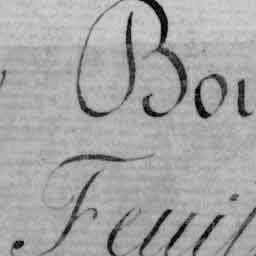 Bou
Feuil